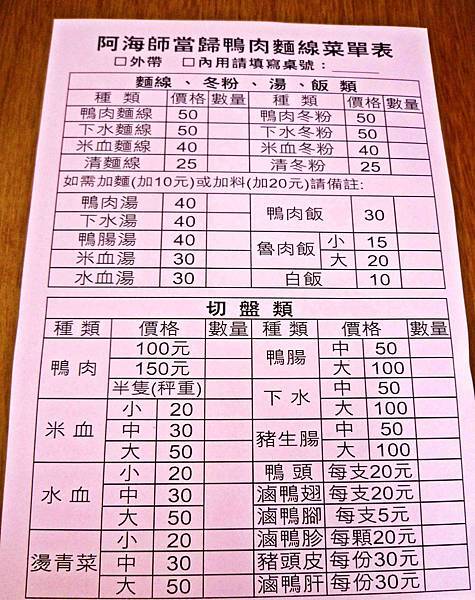 阿海師當歸鴨肉麵線菜單表
□外帶 □內用請填寫桌號：
麵線、冬粉、湯、飯 類
種 類 價格 數量 種 類 價格 數量
鴨肉麵線 50 鴨肉冬粉 50
下水麵線 50 下水冬粉 50
米血麵線 40 米血冬粉 40
清麵線 25 清冬粉 25
如需加麵(加10元)或加料(加20元)請備註:
鴨肉湯 40 鴨肉飯 30
下水湯 40
鴨腸湯 40 魯肉飯 小 15
米血湯 30 大 20
水血湯 30 白飯 10
切 盤 類
種 類 價格 數量 種 類 價格 數量
鴨 肉 100元 鴨腸 中 50
150元 大 100
半隻(秤重) 下 水 中 50
米 血 小 20 大 100
中 30 豬生腸 中 50
大 50 大 100
水 血 小 20 鴨 頭 每支20元
中 30 滷鴨翅 每支20元
大 50 滷鴨腳 每支5元
燙青菜 小 20 滷鴨胗 每顆20元
中 30 豬頭皮 每份30元
大 50 滷鴨肝 每份30元